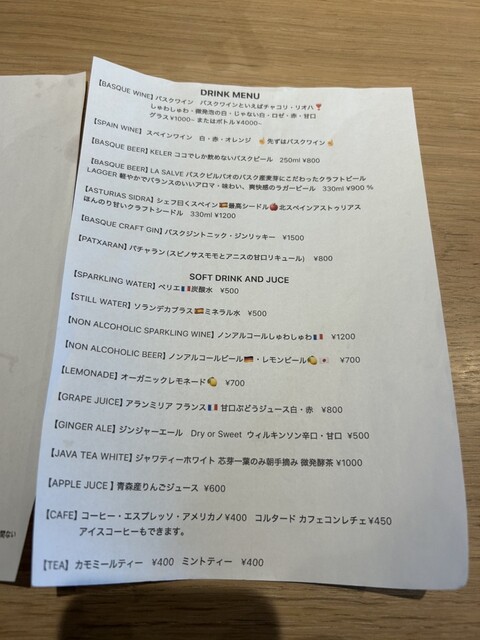 DRINK MENU
【BASQUE WINE】バスクワイン　バスクワインといえばチャコリ・リオハ❣️
しゅわしゅわ・微発泡の白・じゃない白・ロゼ・赤・甘口
グラス¥1000~ またはボトル¥4000~
【SPAIN WINE】 スペインワイン　白・赤・オレンジ　☝️先ずはバスクワイン☝️
【BASQUE BEER】KELER ココでしか飲めないバスクビール　250ml ¥800
【BASQUE BEER】LA SALVE バスクビルバオのバスク産麦芽にこだわったクラフトビール
LAGGER 軽やかでバランスのいいアロマ・味わい、爽快感のラガービール　330ml ¥900 %
【ASTURIAS SIDRA】シェフ曰くスペイン🇪🇸最高シードル🍎北スペインアストゥリアス
ほんのり甘いクラフトシードル　330ml ¥1200
【BASQUE CRAFT GIN】バスクジントニック・ジンリッキー　¥1500
【PATXARAN】パチャラン(スピノサスモモとアニスの甘口リキュール)　¥800
SOFT DRINK AND JUCE
【SPARKLING WATER】ペリエ🇫🇷炭酸水　¥500
【STILL WATER】ソランデカブラス🇪🇸ミネラル水　¥500
【NON ALCOHOLIC SPARKLING WINE】ノンアルコールしゅわしゅわ🇫🇷　¥1200
【NON ALCOHOLIC BEER】ノンアルコールビール🇩🇪・レモンビール🍋🇯🇵　¥700
【LEMONADE】オーガニックレモネード🍋　¥700
【GRAPE JUICE】アランミリア フランス🇫🇷甘口ぶどうジュース白・赤　¥800
【GINGER ALE】ジンジャーエール　Dry or Sweet　ウィルキンソン辛口・甘口 ¥500
【JAVA TEA WHITE】ジャワティーホワイト 芯芽一葉のみ朝手摘み 微発酵茶 ¥1000
【APPLE JUCE 】青森産りんごジュース　¥600
【CAFE】コーヒー・エスプレッソ・アメリカノ¥400　コルタード カフェコンレチェ¥450
アイスコーヒーもできます。
【TEA】カモミールティー　¥400　ミントティー　¥400